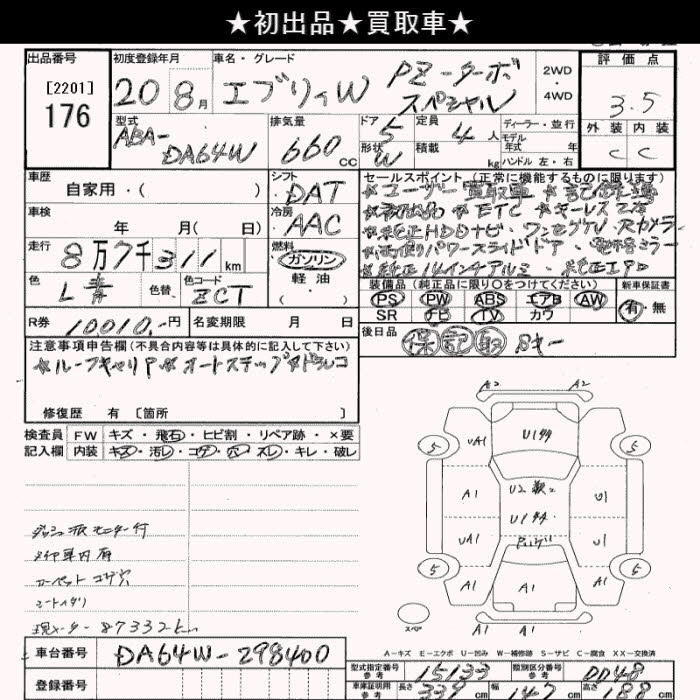 ★初出品★買取車★
出品番号 初度登録年月 車名・グレード 2WD ・ 4WD 評価点
[2201]
176
20 8月 エブリィW PZ-ターボ スペシャル 3.5
外装 内装
C C
型式 排気量 ドア 定員 ディーラー・並行
ABA-DA64W 660cc 5 4人 モデル 年式 年
形状 積載 kg ハンドル 左・右
W
車歴 シフト セールスポイント(正常に機能するものに限ります)
自家用・( ) DAT ※ユーザー買取車
車検 冷房 ※初出品 ※ETC ※キーレス2ヶ
年 月( 日) AAC ※純正HDDナビ・ワンセグTV・Rカメラ
走行 燃料 パワースライドドア・電格ミラー
8万7千311km ガソリン・軽油・( ) ※純正14インチアルミ・純正エアロ
色 色替 色コード 装備品(純正品に限り○をつけてください) 新車保証書
L青 ZCT PS PW ABS エアB AW 有・無
SR ナビ TV カワ
R券 10010円 名変期限 月 日 後日品 保 記 取
注意事項申告欄(不具合内容等は具体的に記入して下さい)
※ルーフキャリア※オートステップ※ドラレコ
修復歴 有 [箇所 ]
検査員 FW キズ・飛石・ヒビ割・リペア跡・×要
記入欄 内装 キズ・汚レ・コゲ・穴・スレ・キレ・破レ
A2 A2
5 UA1 U144 5
A1 U2 U1
U144
UA1 U1
5 A1 A1 A1 5
スペア A1 A1
ダッシュ モニター付
カーペット コゲ穴
現メーター87332km
A-キズ E-エクボ U-凹み W-補修跡 S-サビ C-腐食 XX-交換済
車台番号 DA64W-298400
型式指定番号 参考 15133 類別区分番号 参考 0048
登録番号
車庫証明用 参考 長さ 339cm 幅 147cm 高さ 188cm